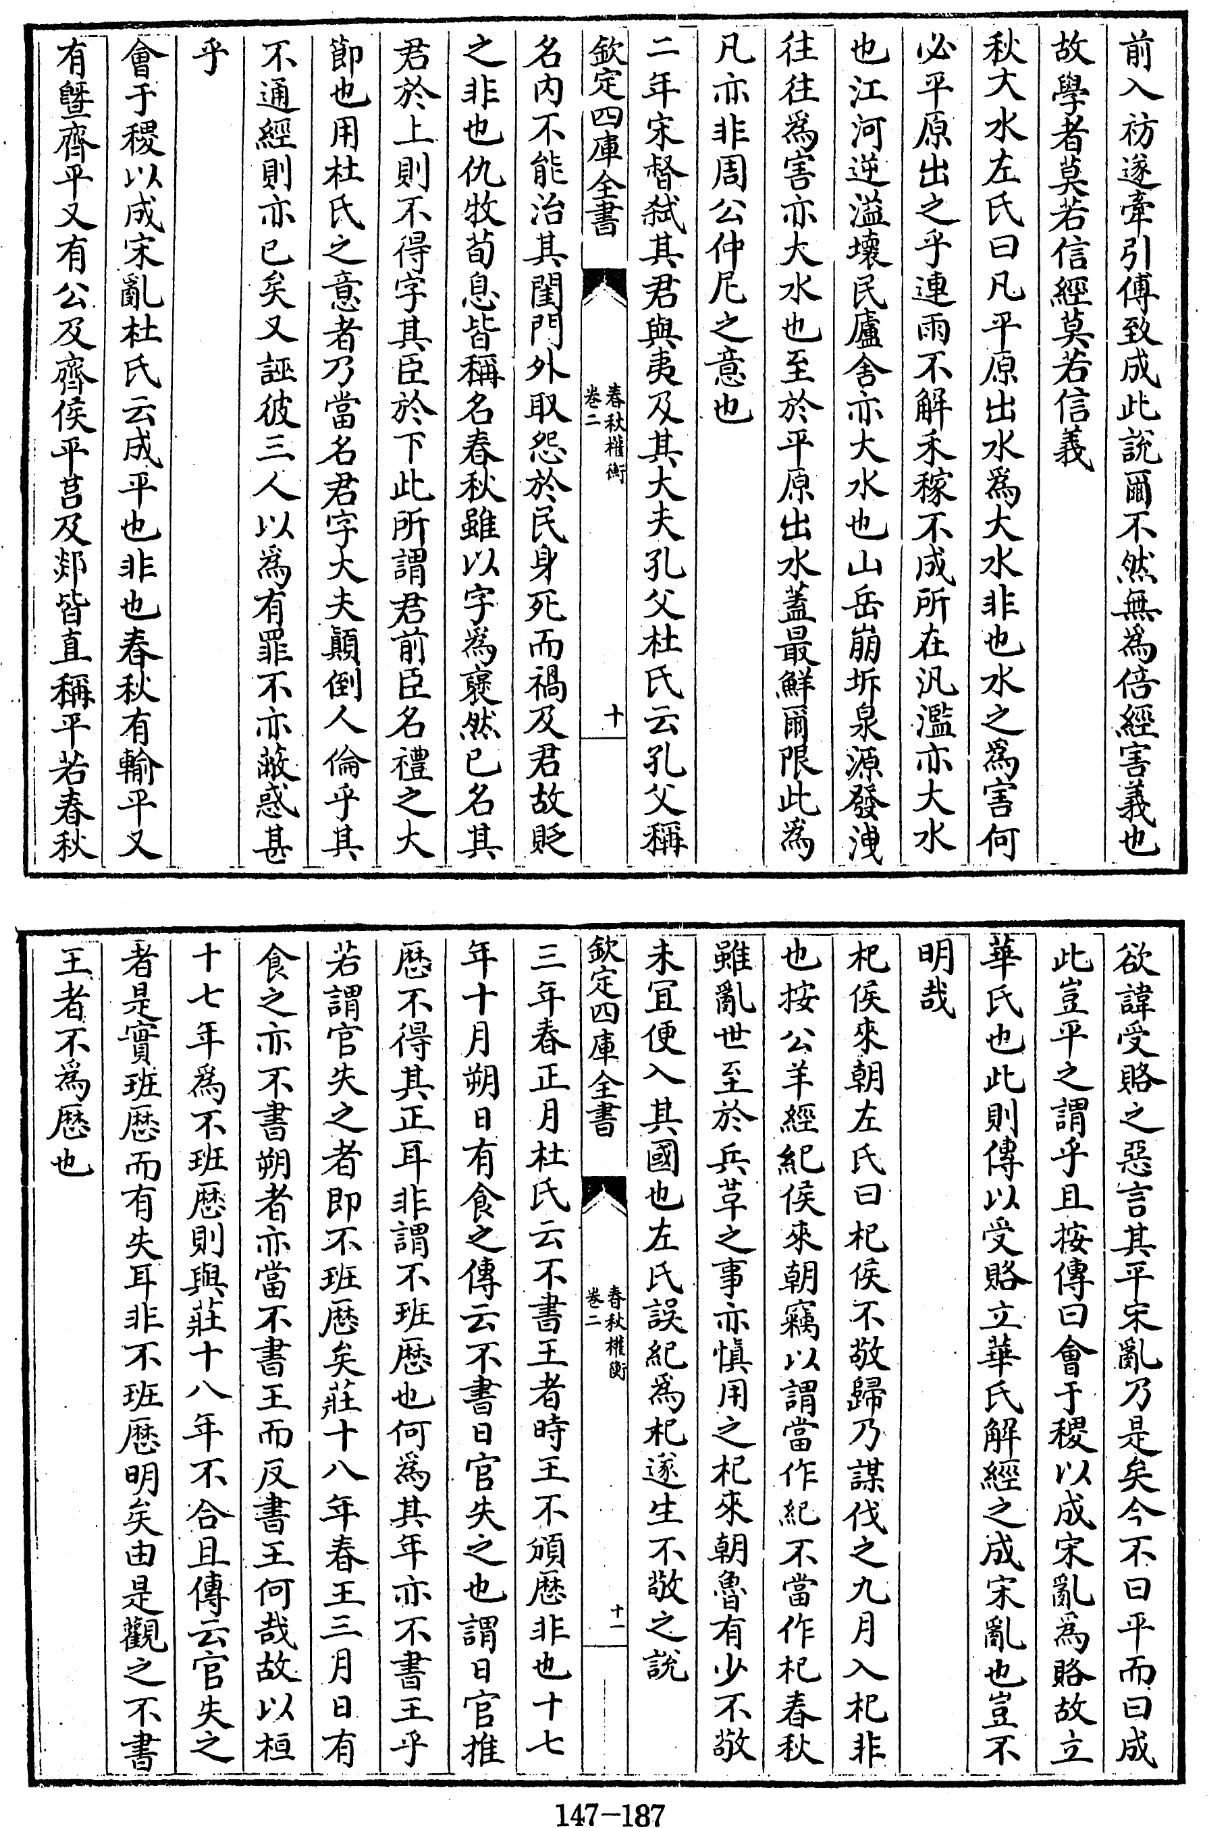 前入祊遂牽引傅致成此説爾不然無為倍經害義也
故學者莫若信經莫若信義
秋大水左氏曰凡平原出水爲大水非也水之爲害何
必平原出之乎連雨不解禾稼不成所在汎濫亦大水
也江河逆溢壞民廬舍亦大水也山岳崩坼泉源發洩
往往爲害亦大水也至於平原出水蓋最鮮爾限此為
凡亦非周公仲尼之意也
二年宋督弑其君與夷及其大夫孔父杜氏云孔父稱
欽定四庫全書
春秋權衡
卷二
十
名内不能治其閨門外取怨於民身死而禍及君故貶
之非也仇牧荀息皆稱名春秋雖以字爲襃然已名其
君於上則不得字其臣於下此所謂君前臣名禮之大
節也用杜氏之意者乃當名君字大夫顛倒人倫乎其
不通經則亦已矣又誣彼三人以爲有罪不亦蔽惑甚
乎
會于稷以成宋亂杜氏云成平也非也春秋有輸平又
有曁齊平又有公及齊侯平莒及郯皆直稱平若春秋
欲諱受賂之惡言其平宋亂乃是矣今不曰平而曰成
此豈平之謂乎且按傳曰會于稷以成宋亂為賂故立
華氏也此則傳以受賂立華氏解經之成宋亂也豈不
明哉
杞侯來朝左氏曰杞侯不敬歸乃謀伐之九月入杞非
也按公羊經紀侯來朝竊以謂當作紀不當作杞春秋
雖亂世至於兵革之事亦慎用之杞來朝魯有少不敬
未冝便入其國也左氏誤紀爲杞遂生不敬之説
欽定四庫全書
春秋權衡
卷二
十一
三年春正月杜氏云不書王者時王不頒厯非也十七
年十月朔日有食之傳云不書日官失之也謂日官推
厯不得其正耳非謂不班厯也何爲其年亦不書王乎
若謂官失之者即不班厯矣莊十八年春王三月日有
食之亦不書朔者亦當不書王而反書王何哉故以桓
十七年爲不班厯則與莊十八年不合且傳云官失之
者是實班厯而有失耳非不班厯明矣由是觀之不書
王者不爲厯也
147-187